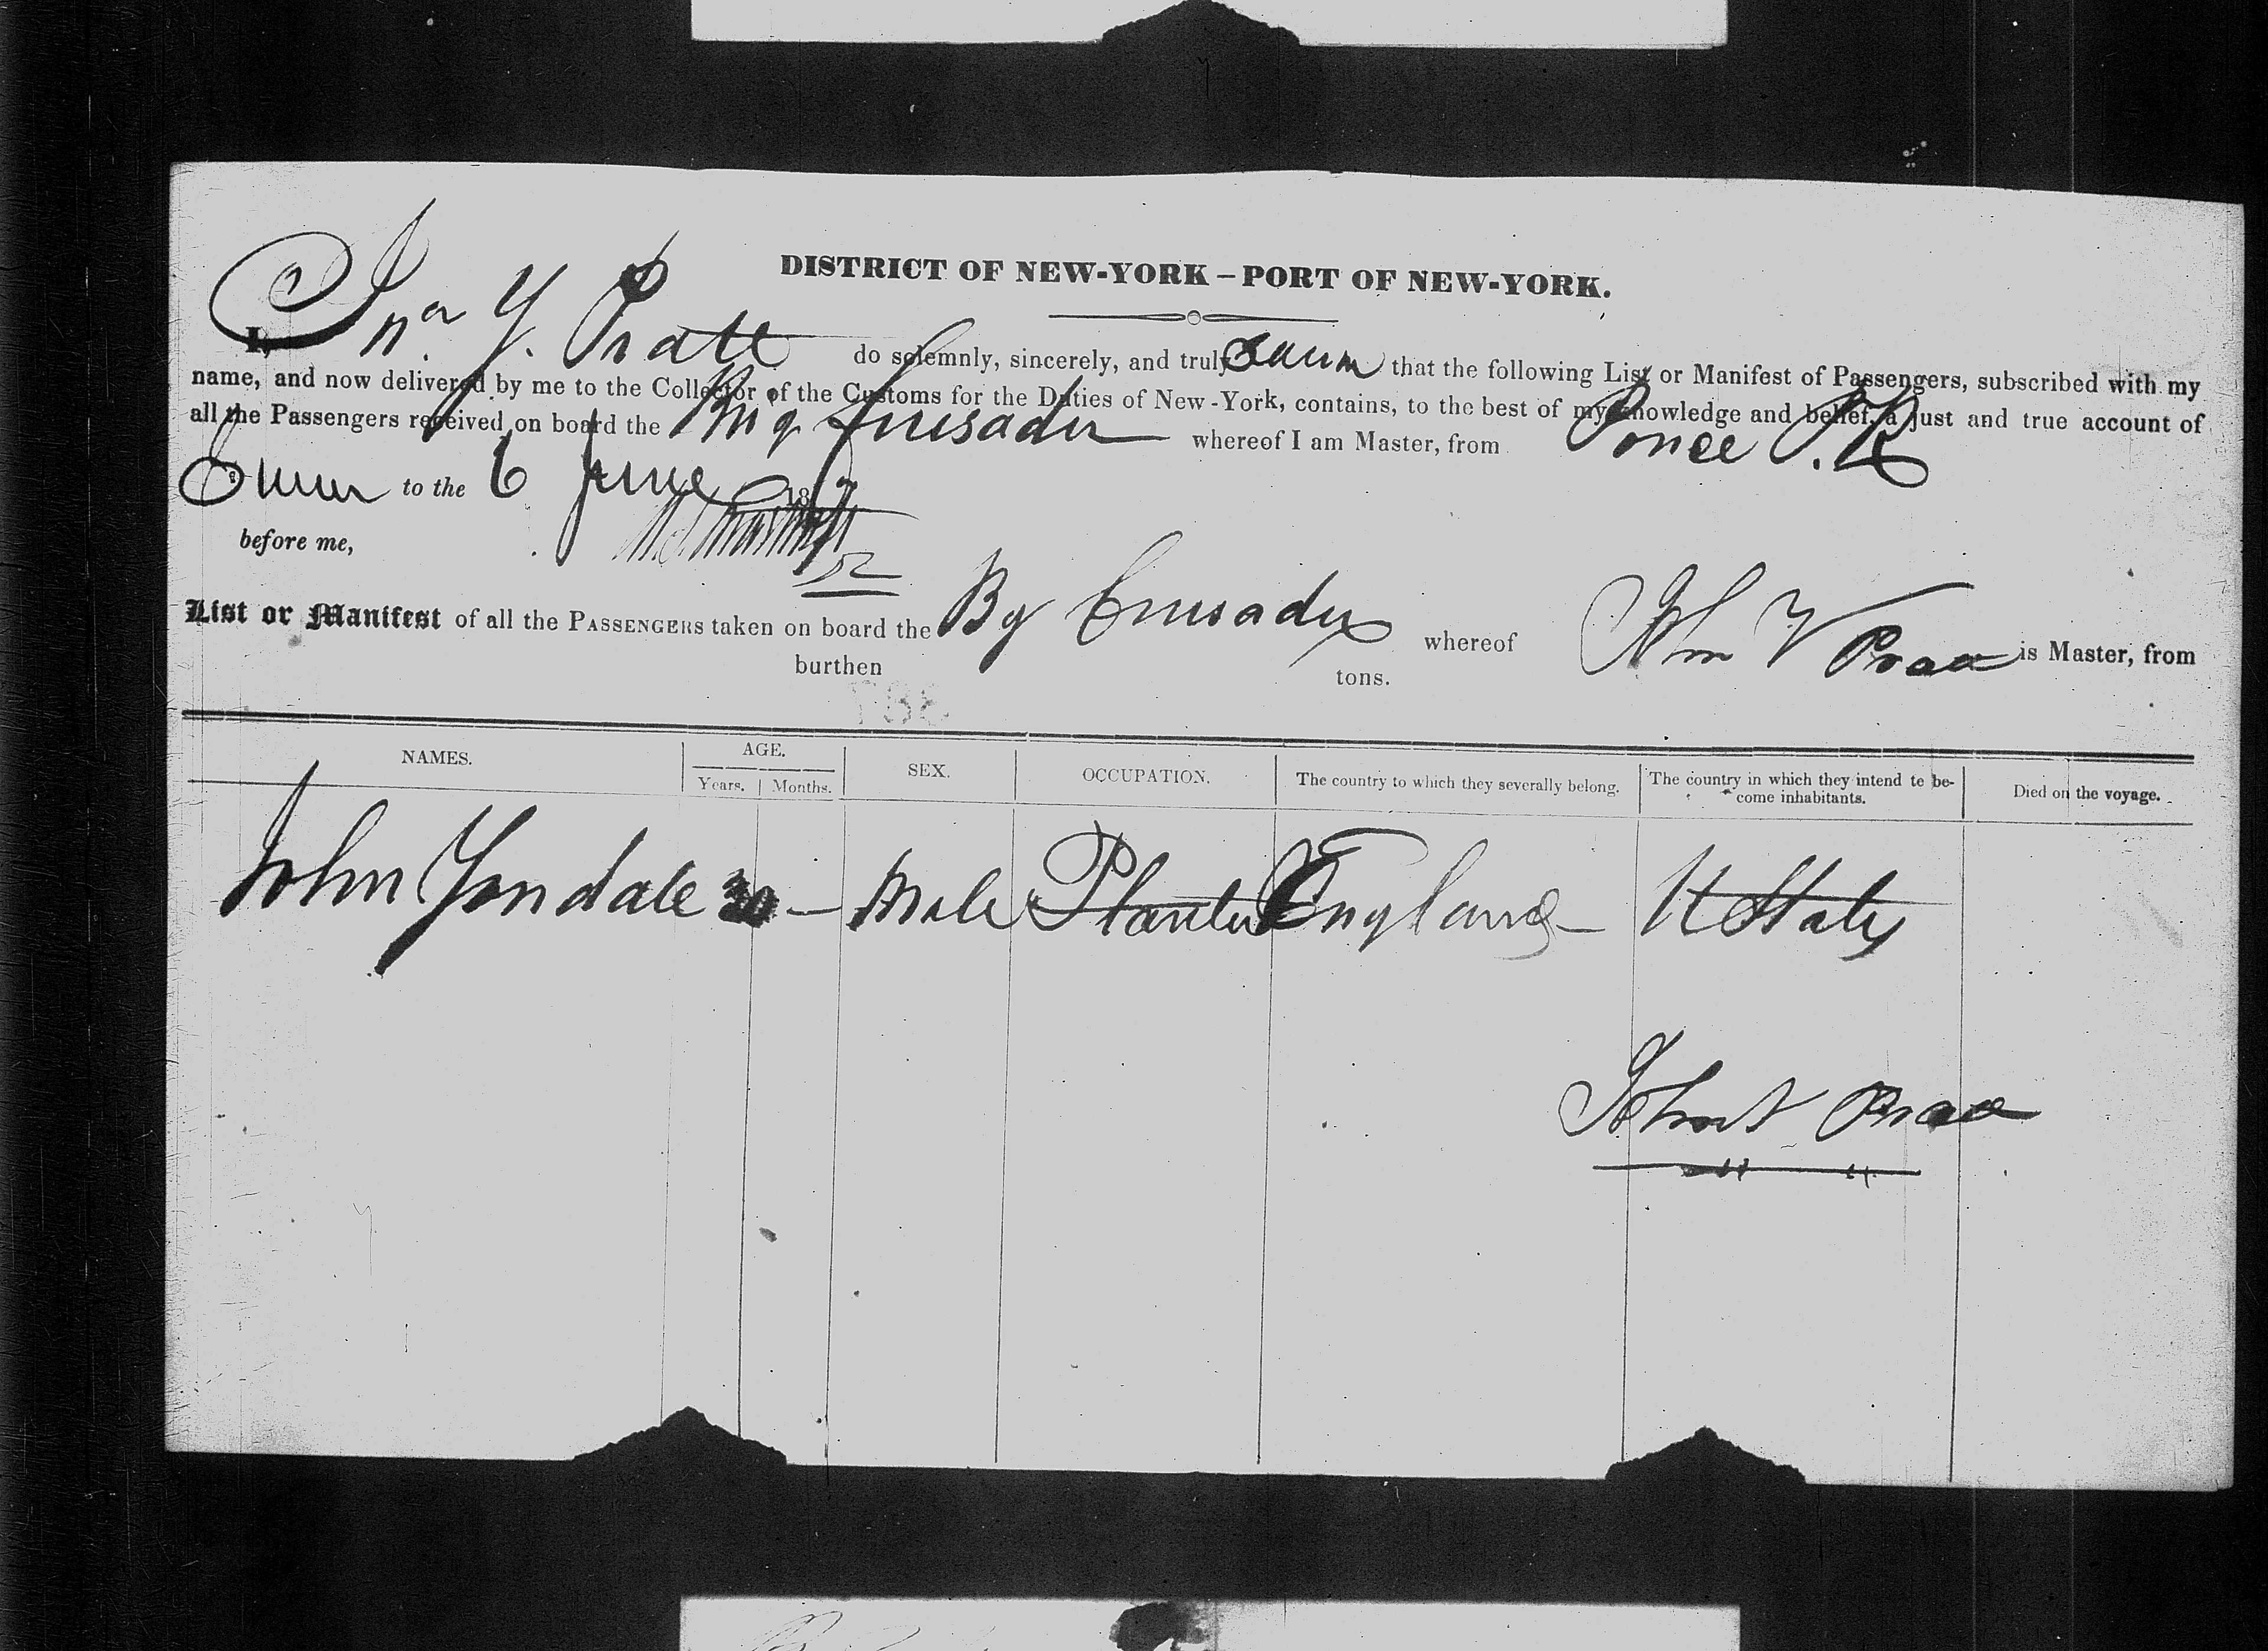 DISTRICT OF NEW-YORK – PORT OF NEW-YORK.
I, Jno Y. Pratt do solemnly, sincerely, and truly swear that the following List or Manifest of Passengers, subscribed with my
name, and now delivered by me to the Collector of the Customs for the Duties of New-York, contains, to the best of my knowledge and belief, a just and true account of
all the Passengers received on board the Brig Crusader whereof I am Master, from Ponce P.R
Sworn to the 6 June 18
before me,
52
List or Manifest of all the PASSENGERS taken on board the Bg Crusader whereof John is Master, from
burthen tons.
NAMES. AGE. SEX. OCCUPATION. The country to which they severally belong. The country in which they intend te be-come inhabitants. Died on the voyage.
Years. Months.
John Yondale 30 – Male Planter England – U States
John